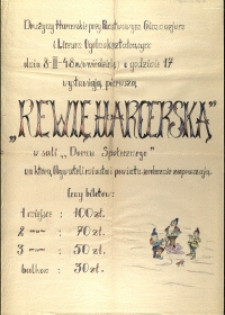 Drużyny Harcerskie przy Państwowym Gimnazjum
i Liceum Ogólnokształcącym
dnia 8-II-48 w niedzielę o godzinie 17
wystawiają pierwszą
„REWIĘ HARCERSKĄ"
w sali „Domu Społecznego"
na którą Obywateli miasta i powiatu zapraszają
Ceny biletów:
1 miejsce : 100 zł.
2 : 70 zł.
3 : 50 zł.
balkon : 30 zł.